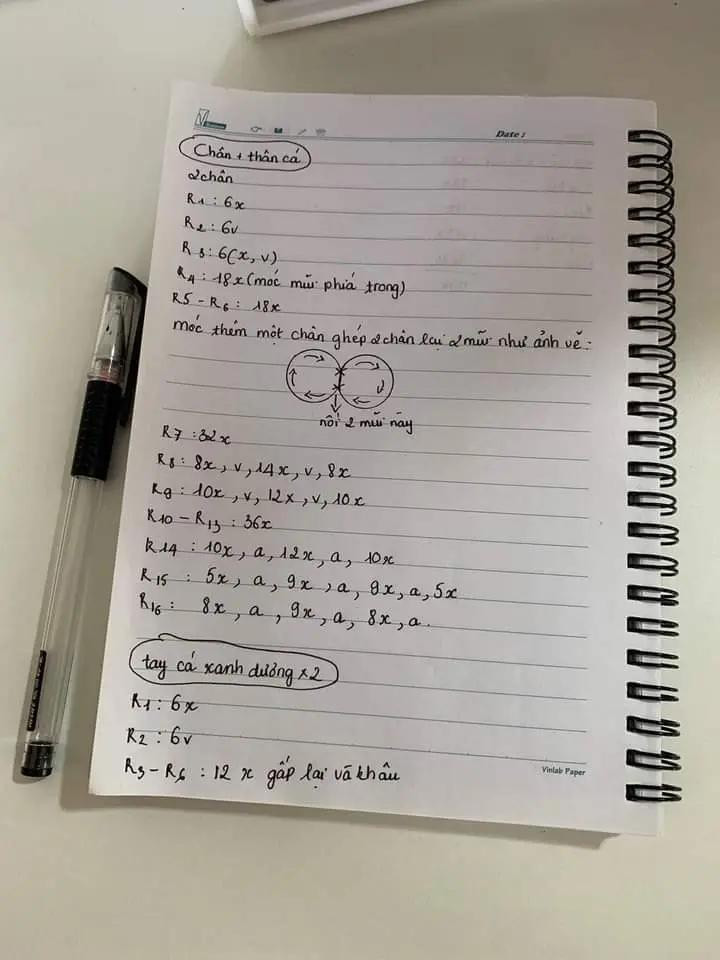 Date :
Chân + thân cá
2chân
R1 : 6x
R2 : 6v
R3 : 6(x, v)
R4 : 18x (móc mũi phía trong)
R5 - R6 : 18x
móc thêm một chân ghép 2 chân lại 2 mũi như ảnh vẽ :
nối 2 mũi này
R7 : 32x
R8 : 8x, v, 14x, v, 8x
R9 : 10x, v, 12x, v, 10x
R10 - R13 : 36x
R14 : 10x, a, 12x, a, 10x
R15 : 5x, a, 9x, a, 9x, a, 5x
R16 : 8x, a, 9x, a, 8x, a.
tay cá xanh dương x2
R1 : 6x
R2 : 6v
R3 - R6 : 12 x gấp lại và khâu
Vinlab Paper